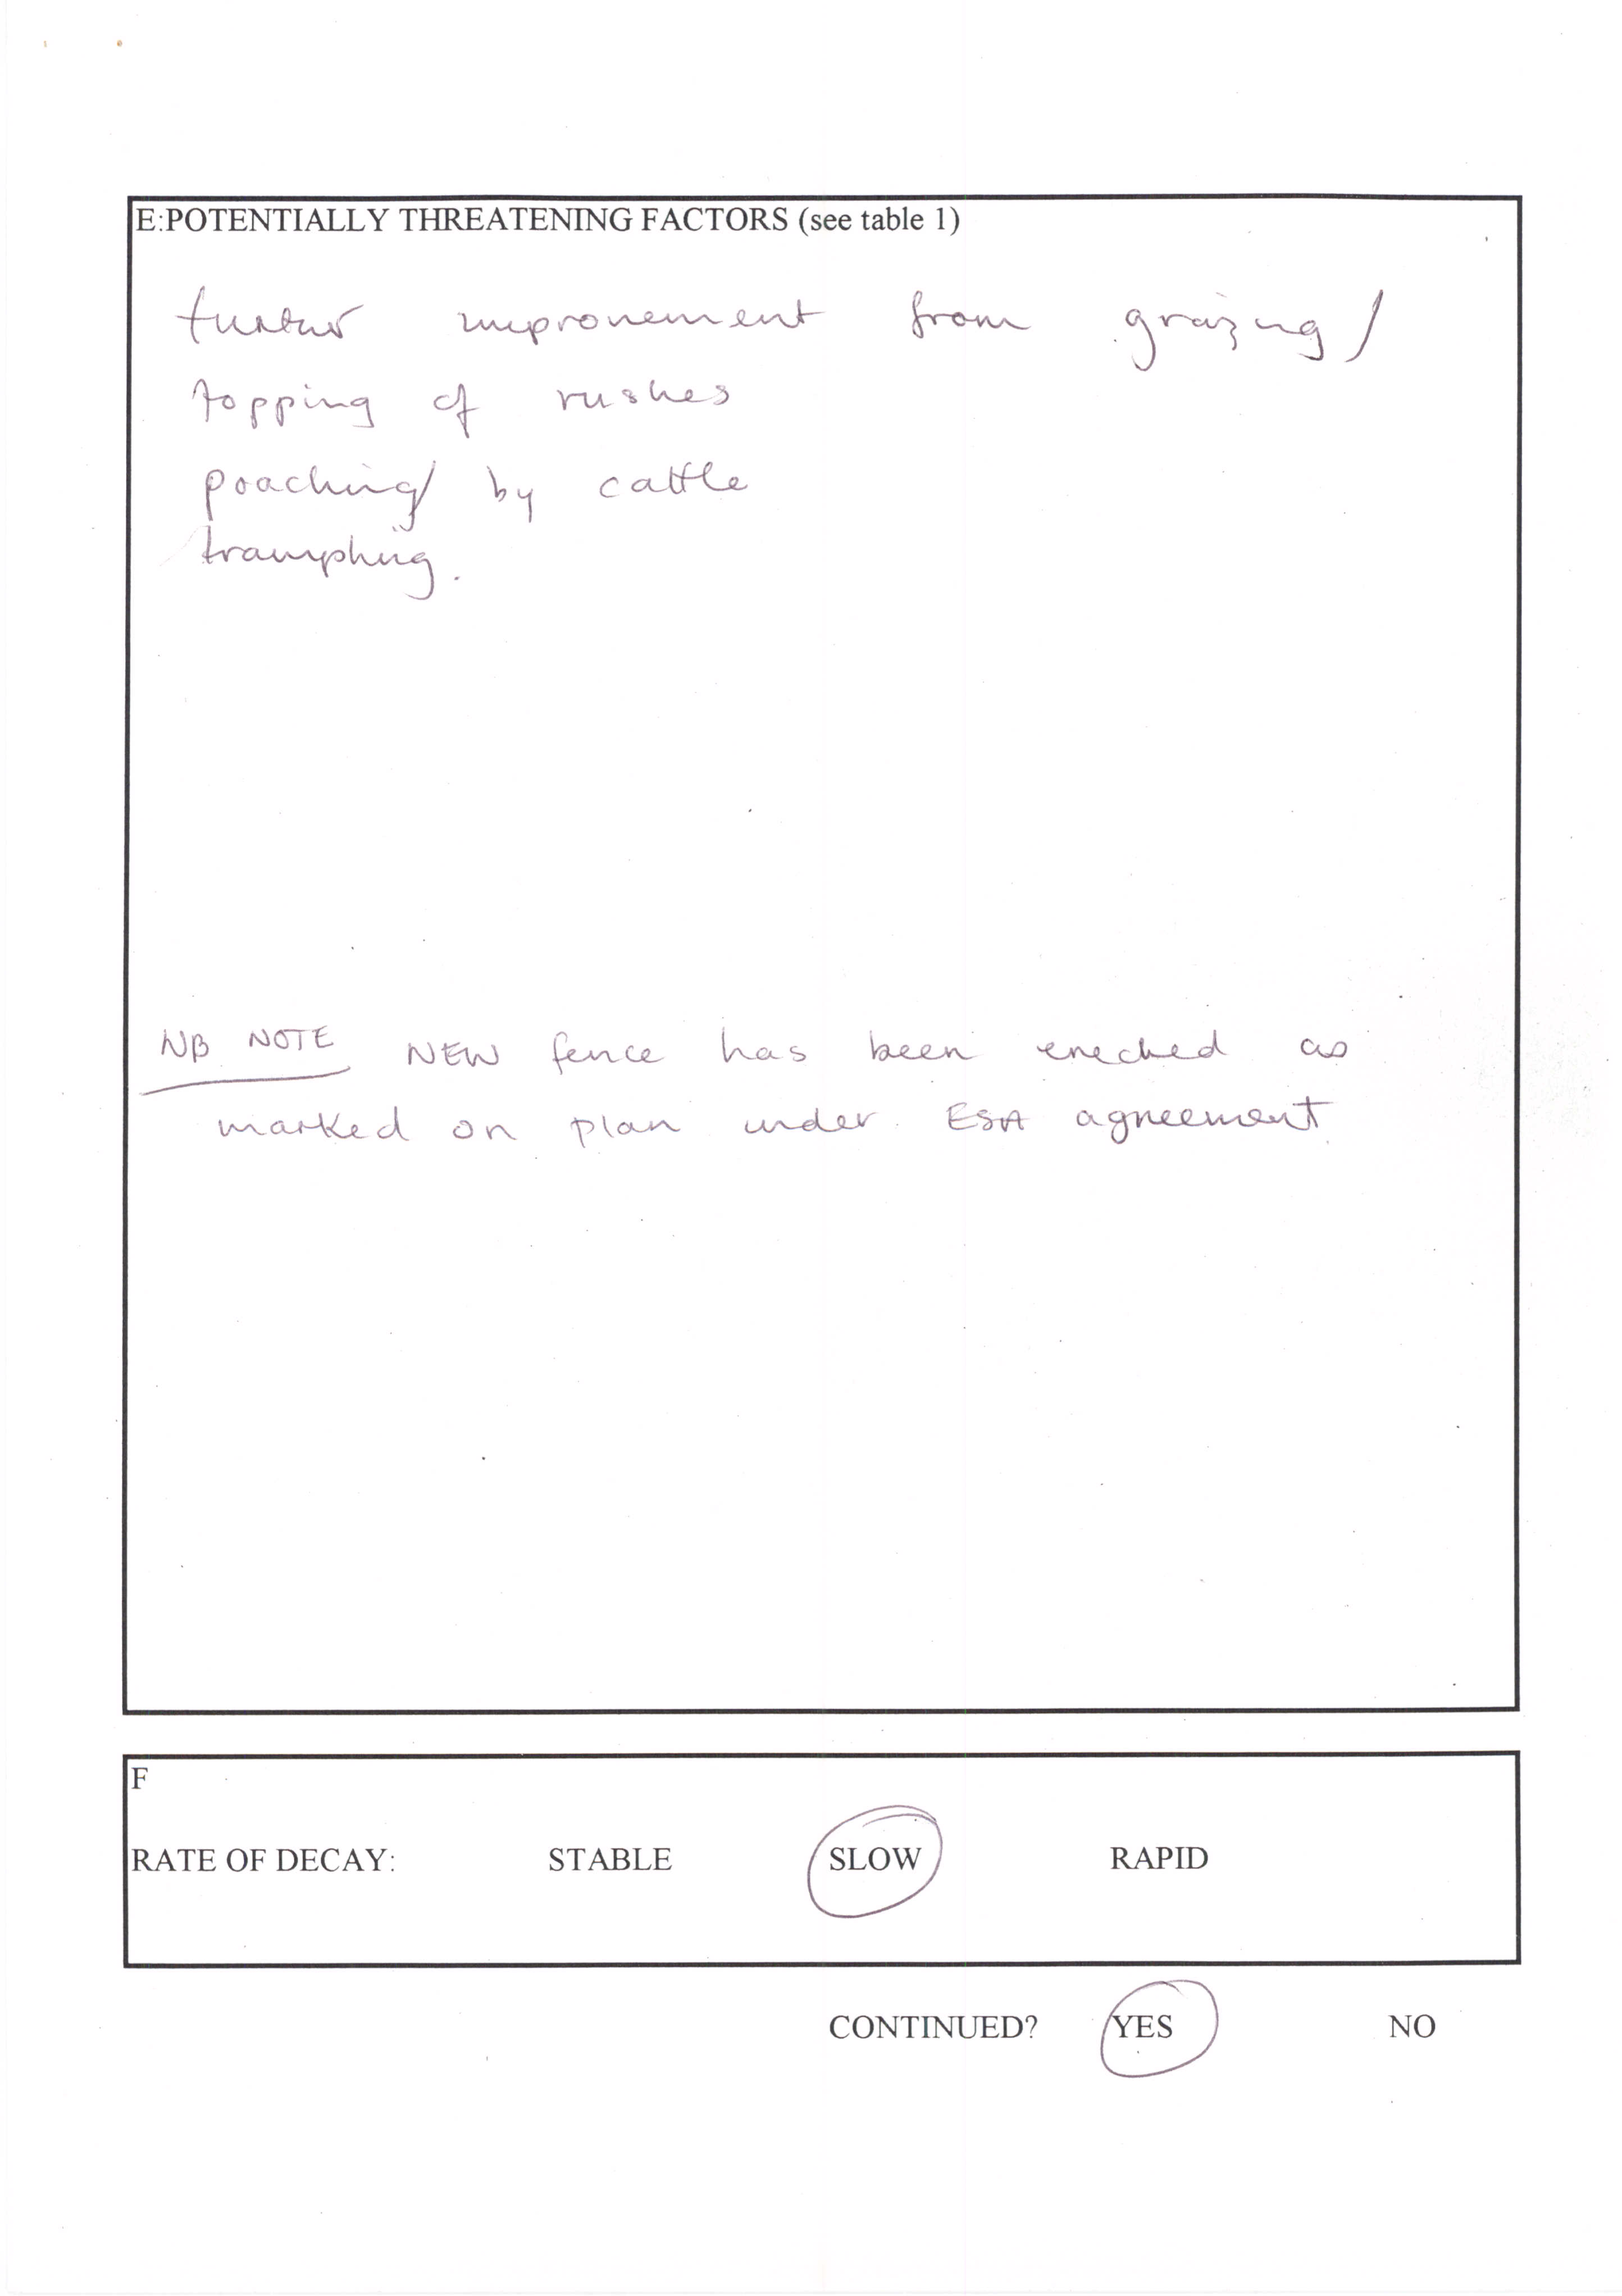 E:POTENTIALLY THREATENING FACTORS (see table 1)
further improvement from grazing/
topping of rushes
poaching/ by cattle
trampling.
NB NOTE NEW fence has been erected as
marked on plan under ESA agreement
F
RATE OF DECAY: STABLE SLOW RAPID
CONTINUED? YES NO